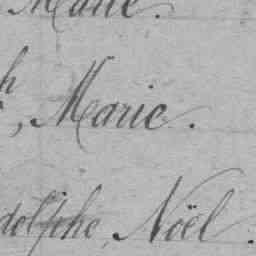 Marie.
h
, Marie.
dolphe, Noël.